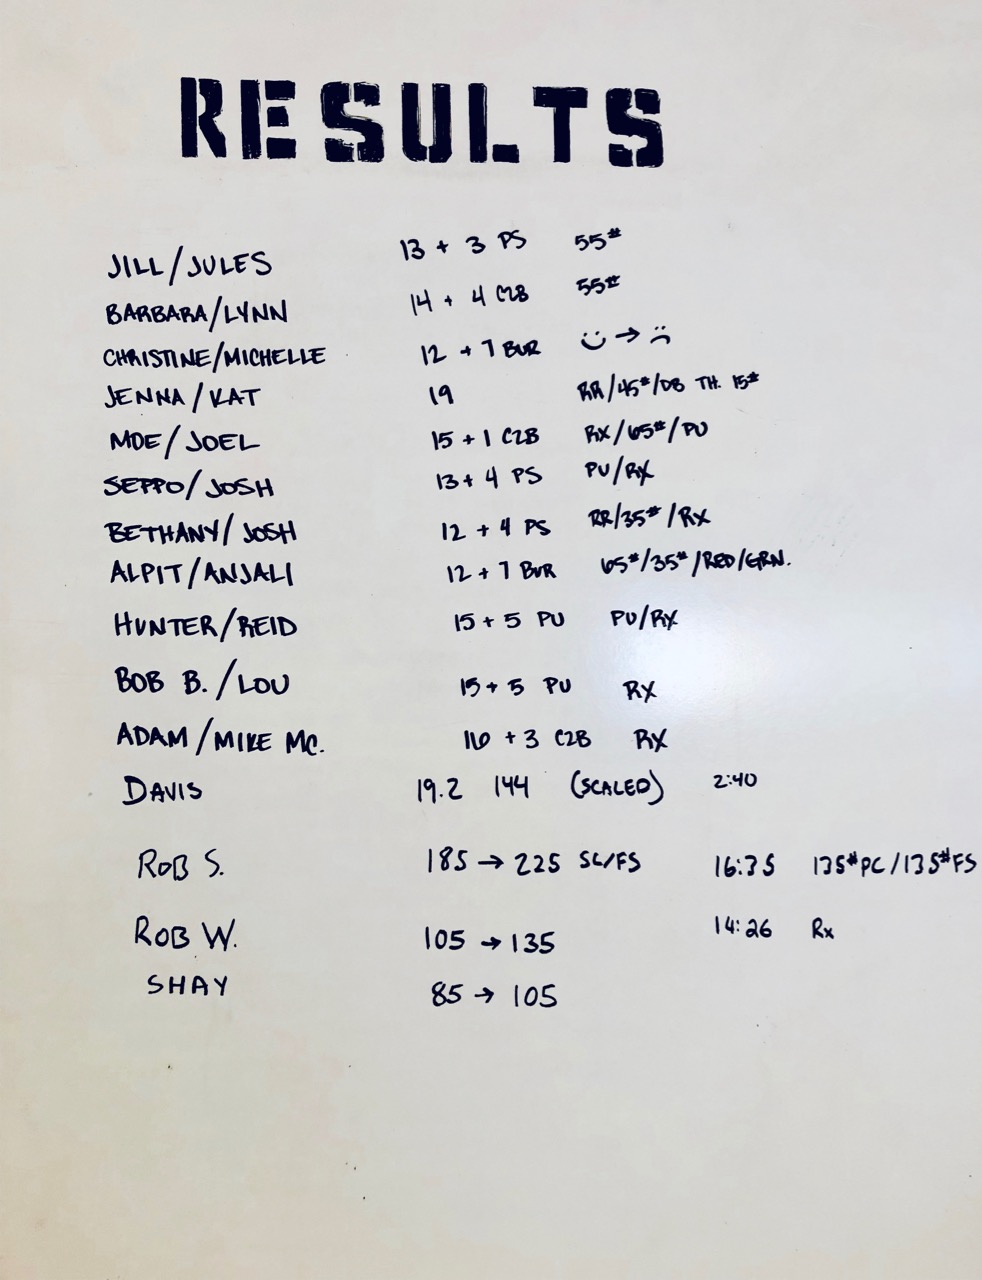 RESULTS
JILL/JULES 13 + 3 PS 55#
BARBARA/LYNN 14 + 4 C2B 55#
CHRISTINE/MICHELLE 12 + 7 BUR :) → :(
JENNA/KAT 19 RR/45#/DB TH. 15#
MOE/JOEL 15 + 1 C2B RX/65#/PU
SEPPO/JOSH 13 + 4 PS PU/RX
BETHANY/JOSH 12 + 4 PS RR/35#/RX
ALPIT/ANJALI 12 + 7 BUR 65#/35#/RED/GRN.
HUNTER/REID 15 + 5 PU PU/RX
BOB B./LOU 15 + 5 PU RX
ADAM/MIKE MC. 16 + 3 C2B RX
DAVIS 19.2 144 (SCALED) 2:40
ROB S. 185 → 225 SC/FS 16:35 135# PC/135# FS
ROB W. 105 → 135 14:26 Rx
SHAY 85 → 105